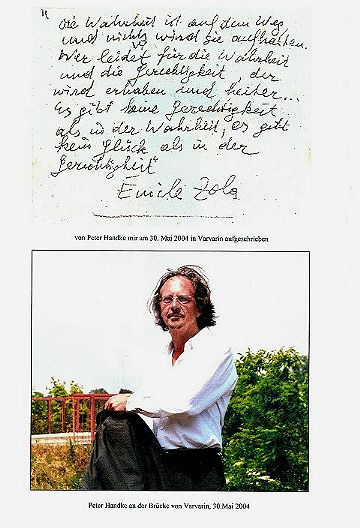 "Die Wahrheit ist auf dem Weg
und nichts wird sie aufhalten.
Wer leidet für die Wahrheit
und die Gerechtigkeit, der
wird erhaben und heiter...
Es gibt keine Gerechtigkeit
als in der Wahrheit, es gibt
kein Glück als in der
Gerechtigkeit"
Emile Zola
von Peter Handke mir am 30. Mai 2004 in Varvarin aufgeschrieben
Peter Handke an der Brücke von Varvarin, 30.Mai 2004